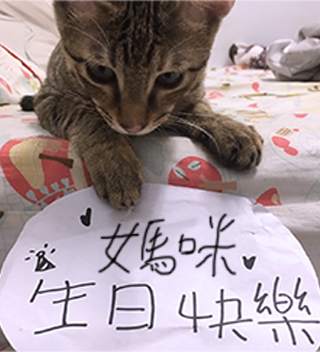 媽咪
生日快樂